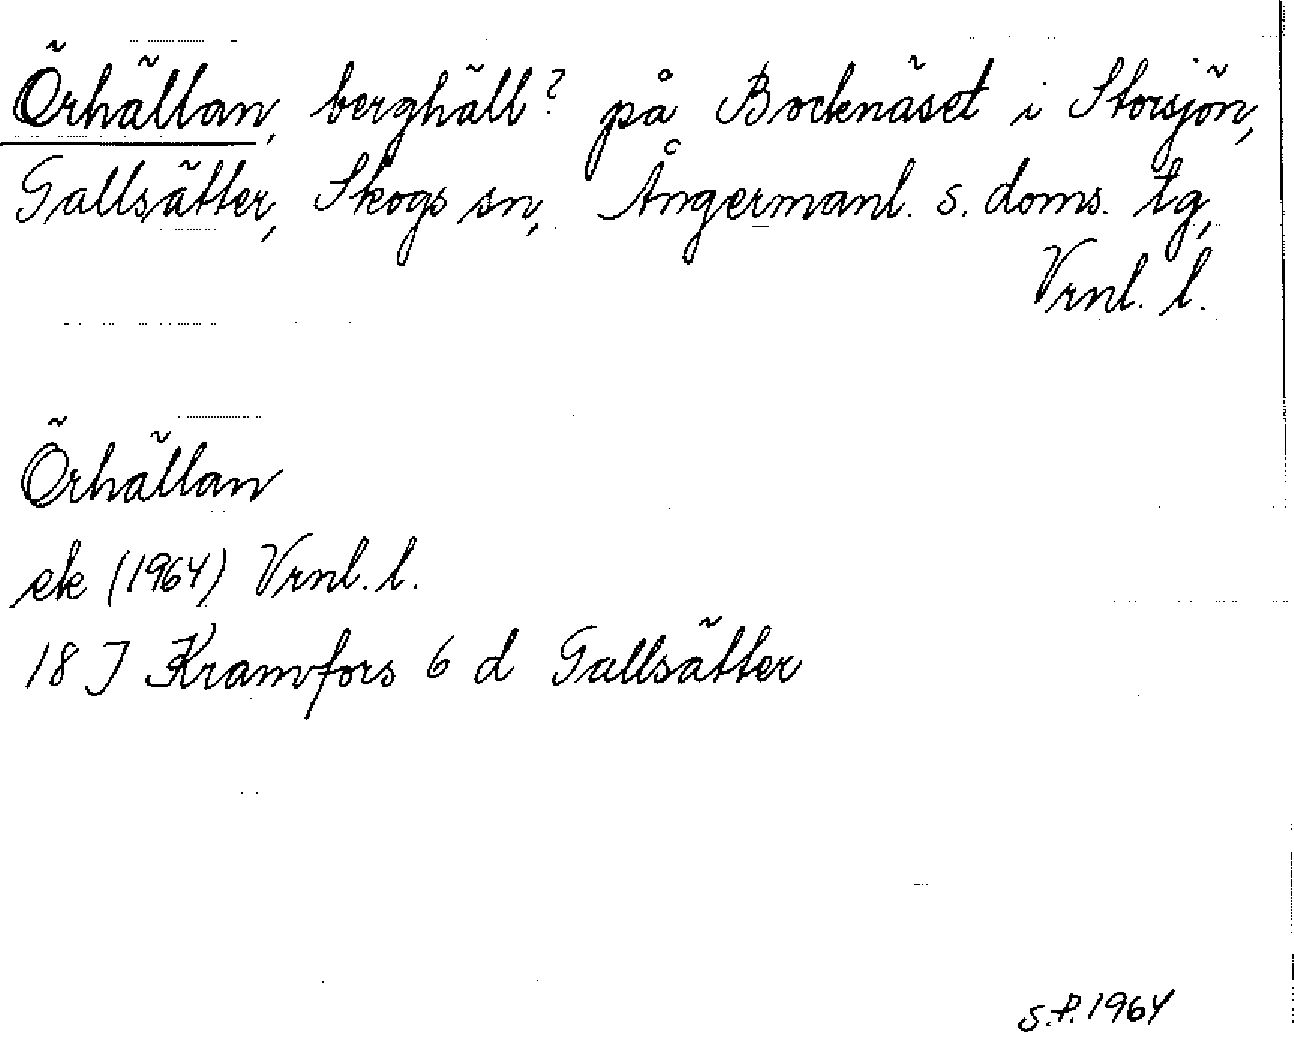 Örhällan, berghäll? på Bocknäset i Storsjön,
Gallsätter, Skogs sn, Ångermanl. s. doms. tg,
Vrnl. l.
Örhällan
ek (1964) Vrnl. l.
18 J Kramfors 6 d Gallsätter
S.P. 1964